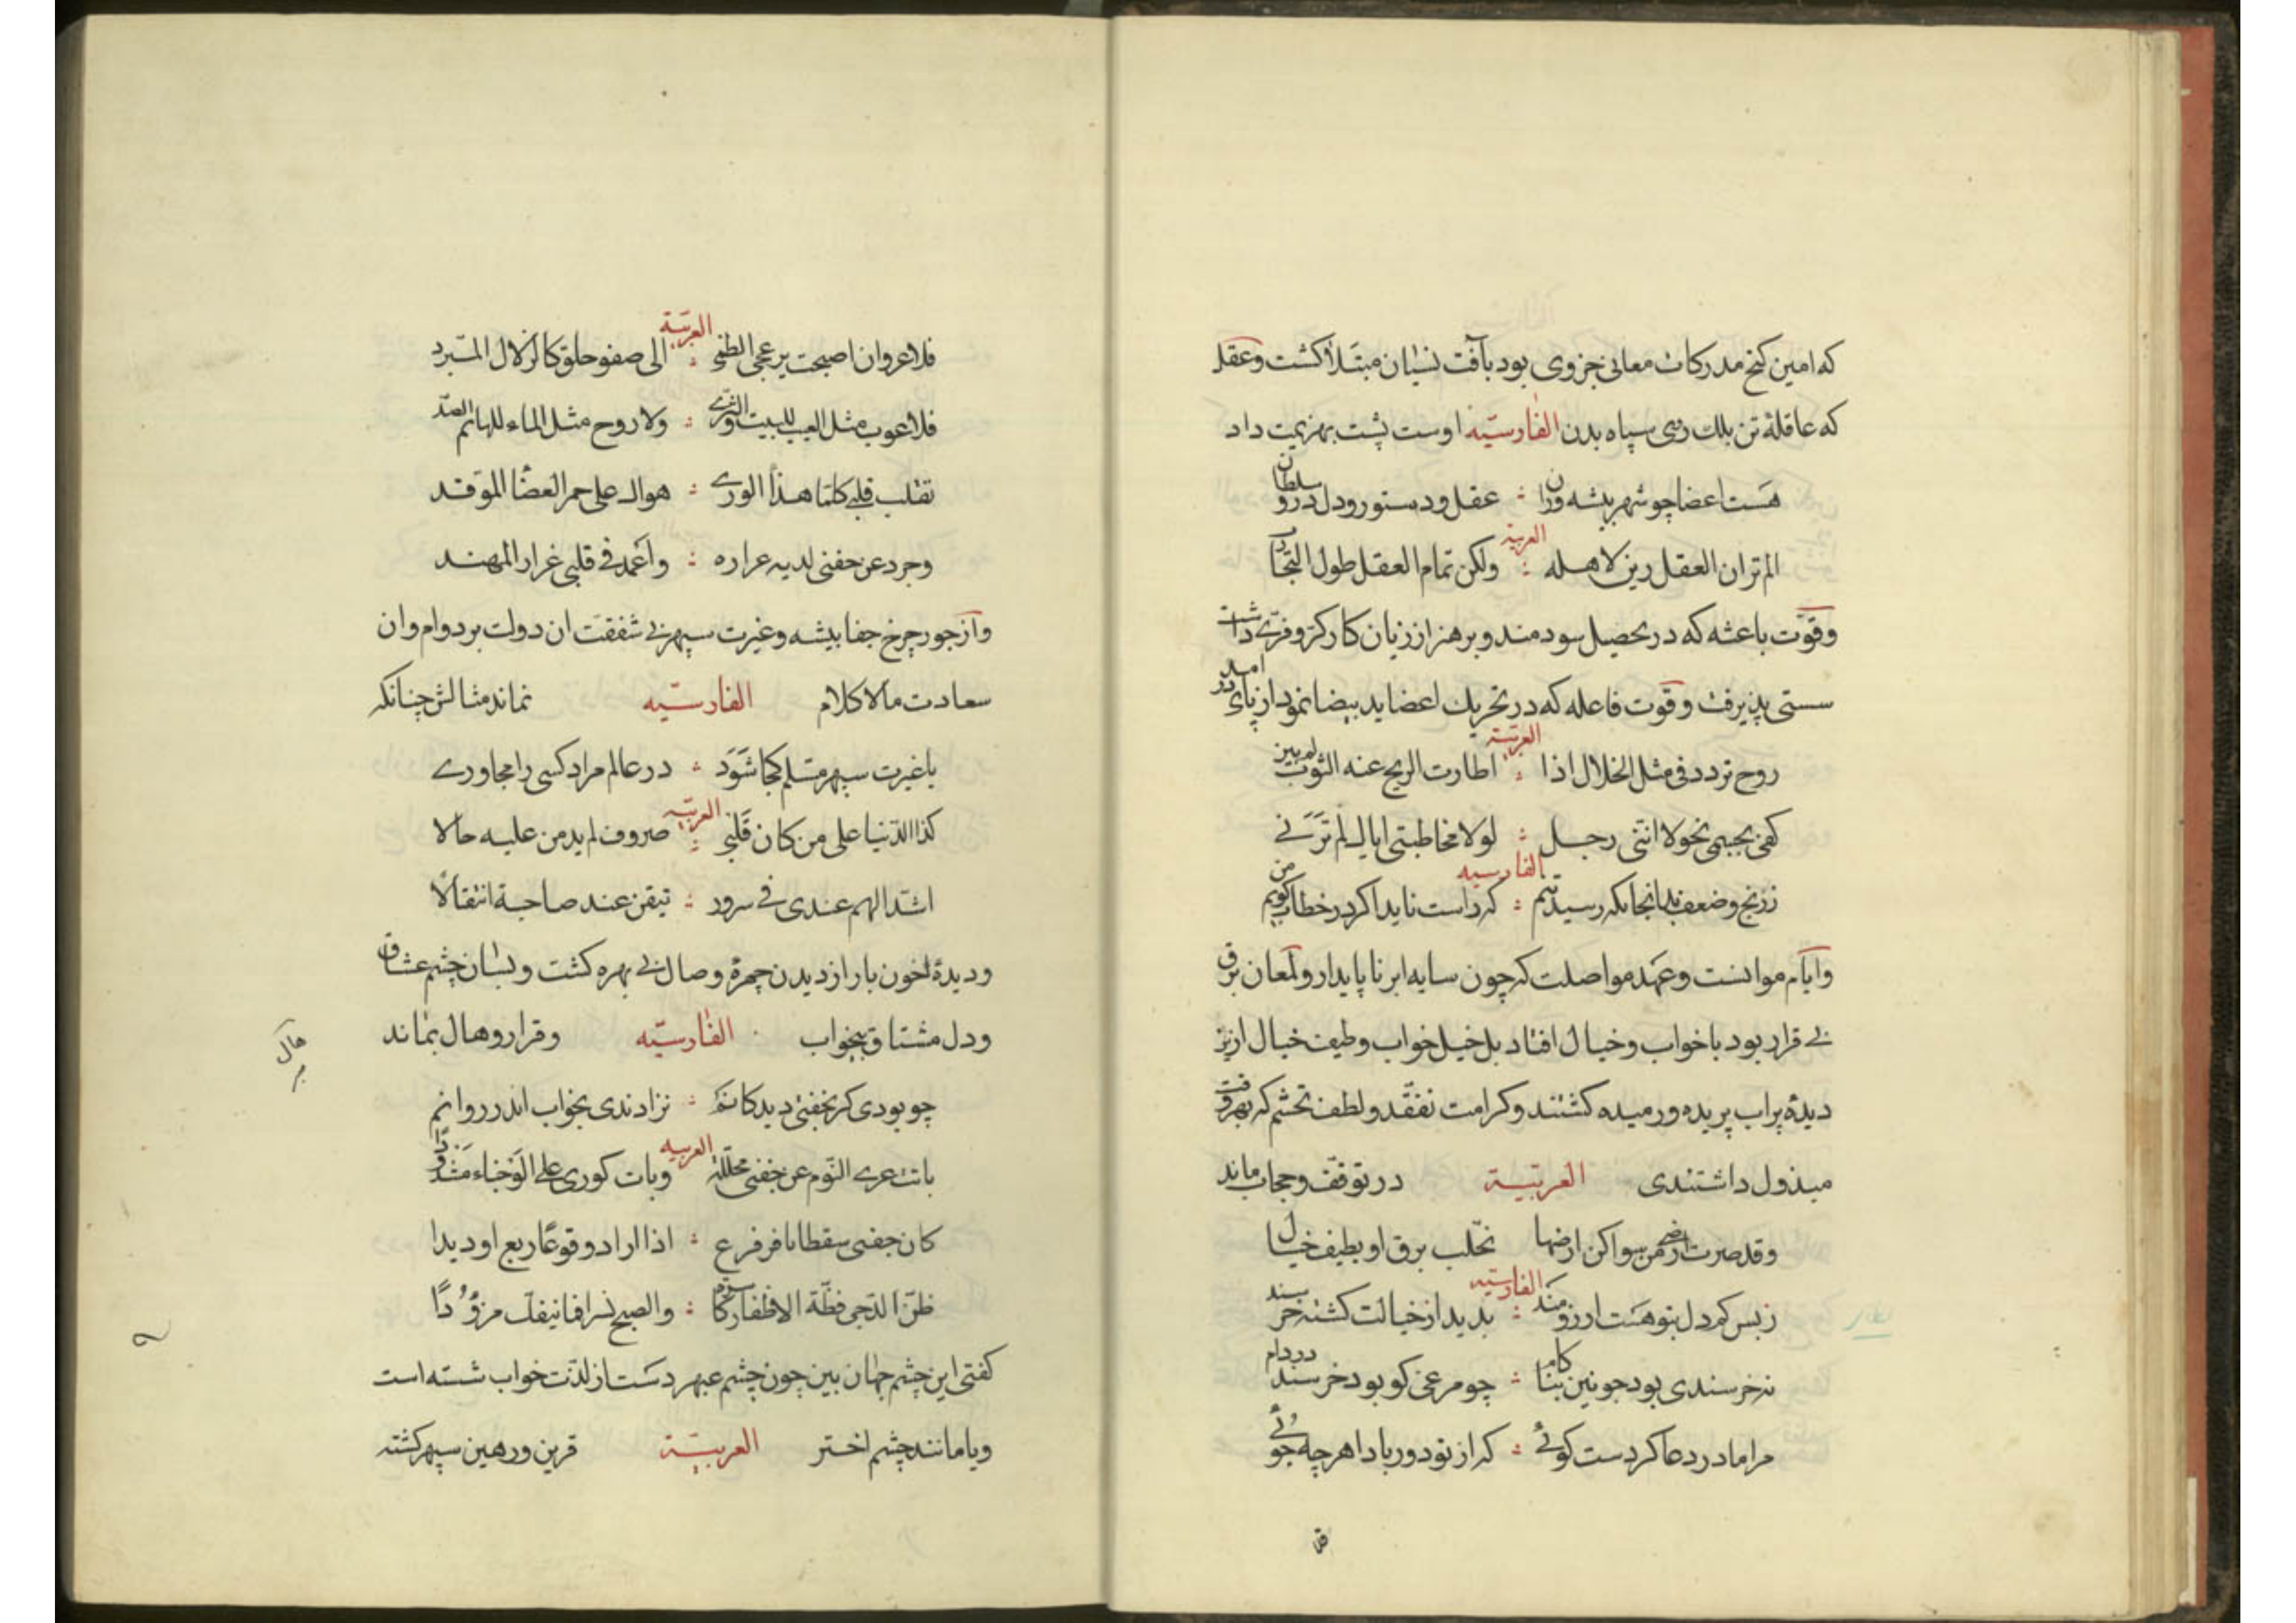 که امین کنج مدرکات معانی جزوی بود بآفت نسیان مبتلا کشت وعقل
که عاقلهٔ تن بلک رسی سپاه بدن الفارسیّه اوست پشت بهزیمت داد
هست اعضا چو شهر پیشه وران : عقل ودستور ودل درو سلطان
العربیه
الم تر ان العقل زین لاهله : ولکن تمام العقل طول التجارب
وقوّت باعثه که در تحصیل سودمند و پرهیز از زیان کار کرّ وفرّی داشت
سستی پذیرفت وقوت فاعله که در تحریک اعضا ید بیضا نمود از پای در امد
العربیّة
روح تردد فی مثل الخلال اذا : اطارت الریح عنه الثوب لم یبن
کفی بجسمی نحولا اننی رجل : لولا مخاطبتی ایاک لم ترنی
الفارسیه
ز رنج وضعف بدانجایکه رسید تنم : که راست ناید اکر در خطاب کویم من
وایّام موانست وعهد مواصلت که چون سایه ابر ناپایدار ولمعان برق
بی قرار بود با خواب وخیال افتاد بل خیل خواب وطیف خیال ازین
دیدهٔ پراب پریده ورمیده کشتند وکرامت تفقّد ولطف تجشم که بهر وقت
مبذول داشتندی العربیّة در توقف وحجاب ماند
وقد صرت ارضی من سواکن ارضها تخلب برق او بطیف خیال
الفارسیّه
ز بس کم دل بتو هست ارزومند : بدیدار خیالت کشته خرسند
نه خرسندی بود جونین بناکام : چو مرغی کو بود خرسند در دام
مرا مادر دعا کردست کوئی : که از تو دور بادا هرچه جوئی
العربیّة
فلا غرو ان اصبحت یرعجی الظمی : الی صفو حلق کالزلال المبّرد
فلا عوب مثل العیب للبیت والثری : ولا روح مثل الماء للهائم الصد
تقلب قلبی کلما هذا الوری : هوالد علی جمر الغضا الموقد
وجرد عن جفنی لدیه غراره : واغمد فی قلبی غرار المهند
واز جور چرخ جفا پیشه وغیرت سپهر بی شفقت ان دولت بر دوام وان
سعادت مالاکلام الفارسیّه نماند مثالش چنانکه
با غیرت سپهر مسلم کجا شود : در عالم مراد کسی را مجاوری
العربیّه
کذا الدّنیا علی من کان قبلی : صروف لم یدمن علیه حالا
اشدّ الهم عندی فی سرور : تیقن عند صاحبه انتقالا
ودیدهٔ خون بار از دیدن چهرهٔ وصال بی بهره کشت وبسان چشم عشاق
ودل مشتاق بیخواب الفارسیّه وقرار وهال بماند
هال
چو بودی کر بخفتی دیدکانم : نزادندی بخواب اندر روانم
العربیه
باتت عری النّوم عن جفنی محللة وبات کوری علی الوجناء مشدودا
کان جفنی سقطا نافر فزع : اذا اراد وقوعا ریع او دیدا
ظنّ الدّجی فظّة الاظفار کاسرة : والصبح نسرا فما ینفک مزؤدا
کفتی این چشم جهان بین چون چشم عبهر دست از لذت خواب شسته است
ویا مانند چشم اختر العربیّة قرین ورهین سپهر کشته